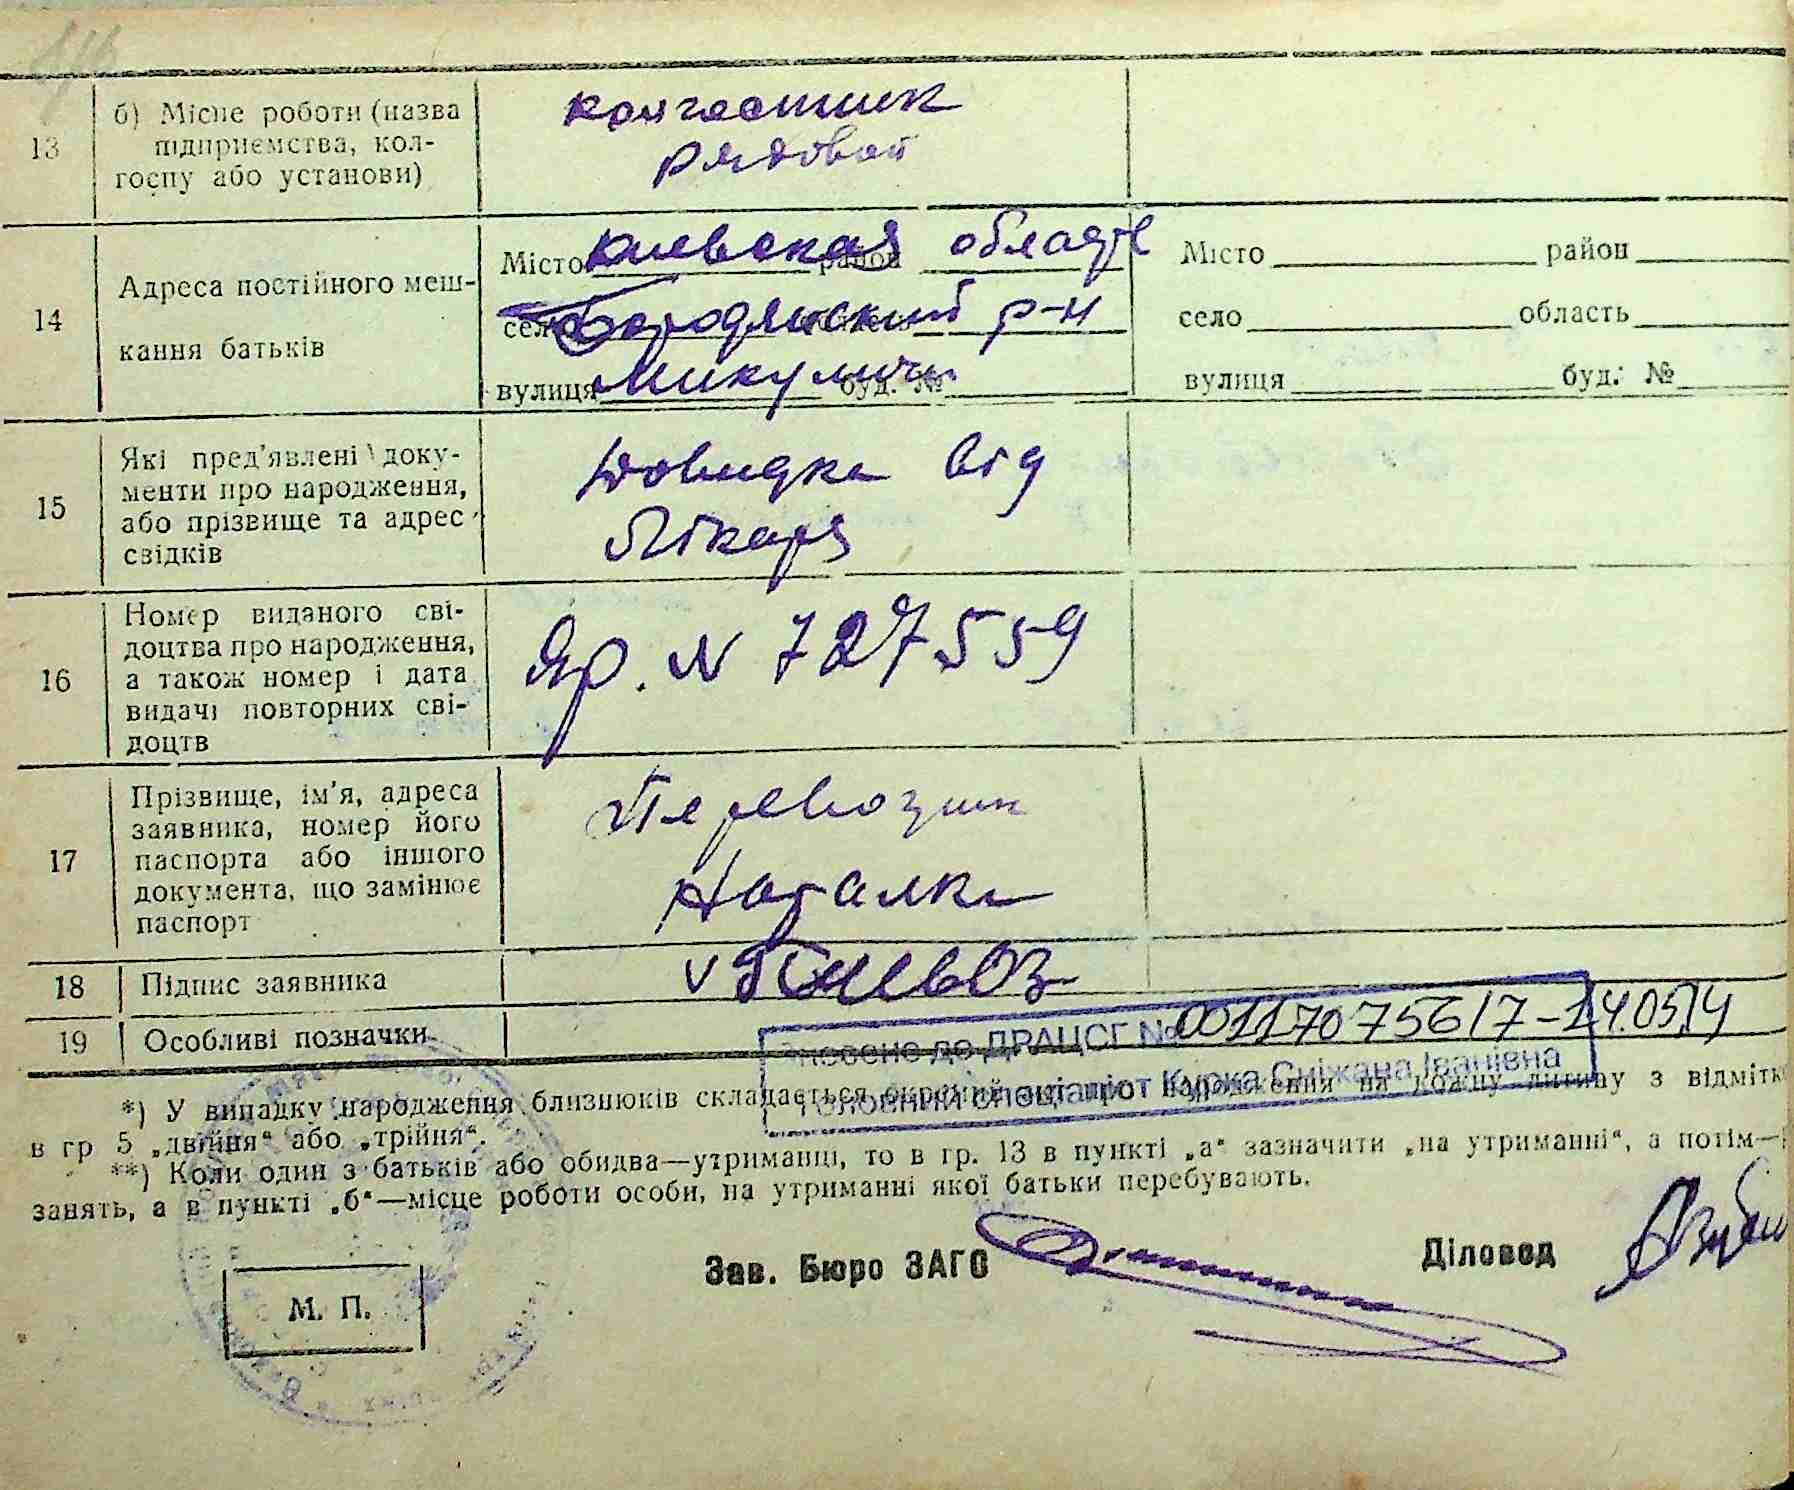 13
б) Місце роботи (назва
підприємства, кол-
госпу або установи)
рядовой
14
Адреса постійного меш-
кання батьків
Місто Киевская район область
село Бородянский р-н
вулиця Микуличи буд. №
Місто район
село область
вулиця буд. №
15
Які пред'явлені доку-
менти про народження,
або прізвище та адрес
свідків
Довидка від
Лікаря
16
Номер виданого сві-
доцтва про народження,
а також номер і дата
видачі повторних сві-
доцтв
Яр. N 727559
17
Прізвище, ім'я, адреса
заявника, номер його
паспорта або іншого
документа, що замінює
паспорт
Перевозник
Наталка
18 Підпис заявника
19 Особливі позначки
внесено до ДРАЦСГ № 00117075617-14.05.14
Головний спеціаліст Курка Сніжана Іванівна
*) У випадку народження близнюків складається окремий акт про народження на кожну дитину з відмітк
в гр 5 „двійня“ або „трійня“.
**) Коли один з батьків або обидва—утриманці, то в гр. 13 в пункті „а“ зазначити „на утриманні“, а потім—
занять, а в пункті „б“—місце роботи особи, на утриманні якої батьки перебувають.
М. П.
Зав. Бюро ЗАГС
Діловод